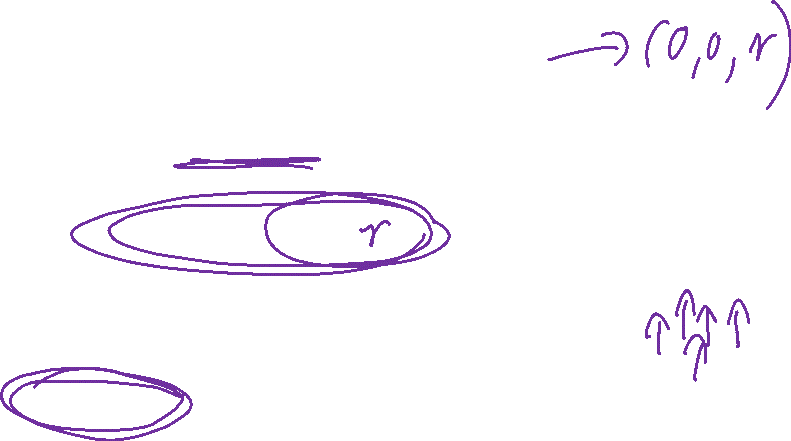 → (0, 0, r)
r
↑ ↑ ↑ ↑ ↑